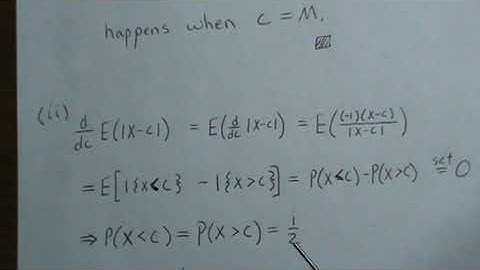 happens when c = M.
(ii) d/dc E(|X-c|) = E(d/dc |X-c|) = E((-1)(X-c)/|X-c|)
= E[1{X<c} - 1{X>c}] = P(X<c) - P(X>c) set = 0
⇒ P(X<c) = P(X>c) = 1/2